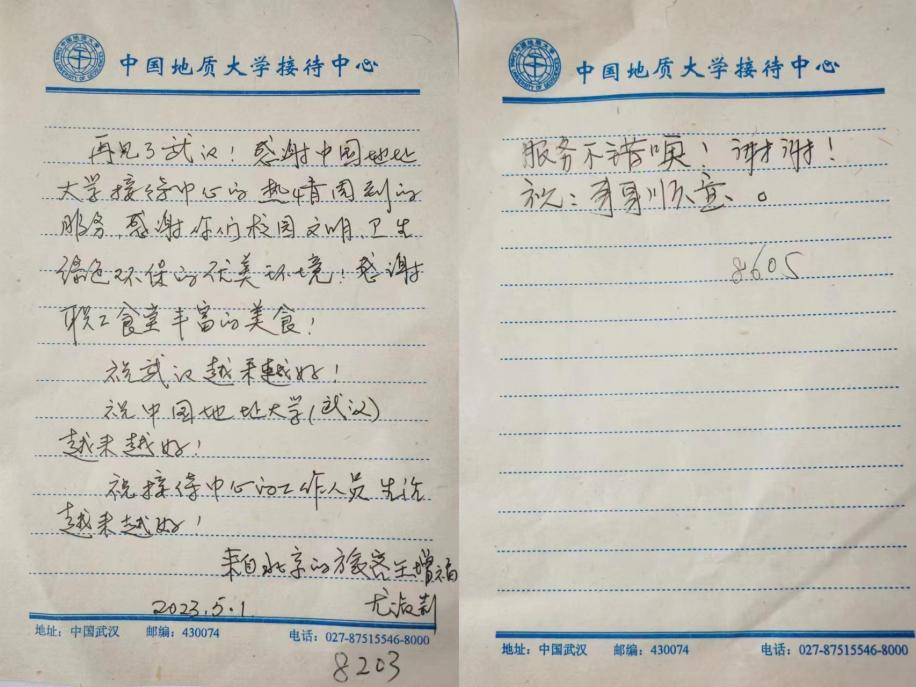 中国地质大学接待中心
再见了武汉！感谢中国地址
大学接待中心的热情周到的
服务，感谢你们校园文明、卫生
绿色环保的优美环境！感谢
职工食堂丰富的美食！
祝武汉越来越好！
祝中国地址大学(武汉)
越来越好！
祝接待中心的工作人员生活
越来越好！
来自北京的旅客王增福
尤淑莉
2023.5.1
地址：中国武汉 邮编：430074 电话：027-87515546-8000
8203
中国地质大学接待中心
服务不错噢！谢谢！
祝：事事顺意。
8605
地址：中国武汉 邮编：430074 电话：027-87515546-8000